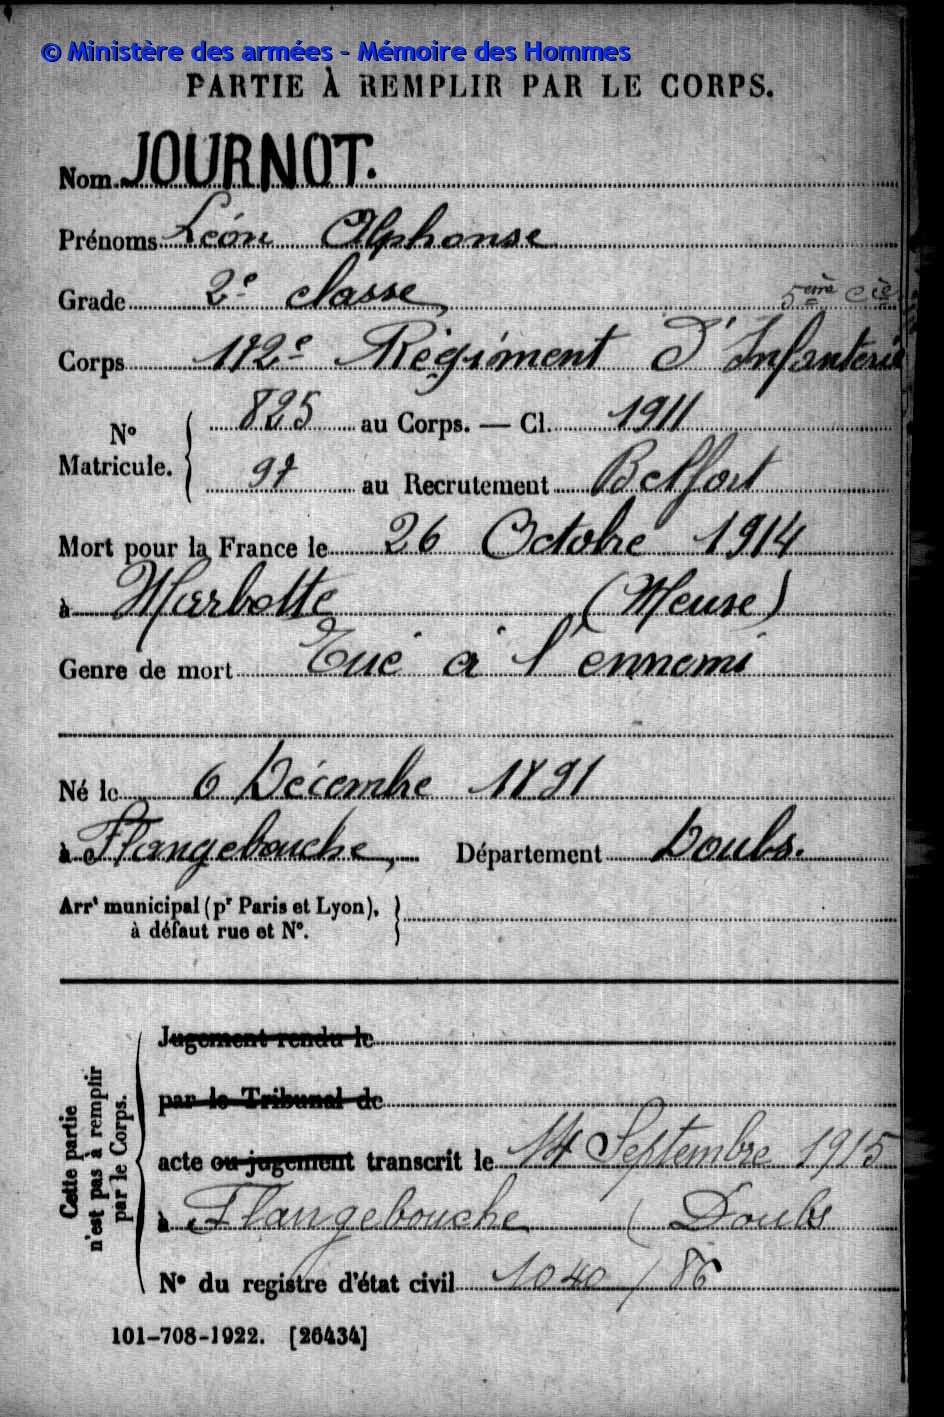 © Ministère des armées - Mémoire des Hommes
PARTIE À REMPLIR PAR LE CORPS.
Nom JOURNOT.
Prénoms Léon Alphonse
Grade 2e classe, 5eme Cie
Corps 172e Régiment d'Infanterie
N° Matricule. { 825 au Corps. — Cl. 1911
97 au Recrutement Belfort
Mort pour la France le 26 Octobre 1914
à Marbotte (Meuse)
Genre de mort Tué à l'ennemi
Né le 6 Décembre 1891
à Flangebouche, Département Doubs.
Arrt municipal (pr Paris et Lyon), }
à défaut rue et N°.
Cette partie n'est pas à remplir par le Corps.
Jugement rendu le
par le Tribunal de
acte ou jugement transcrit le 14 Septembre 1915
à Flangebouche (Doubs
N° du registre d'état civil 1040 / 86
101-708-1922. [26434]